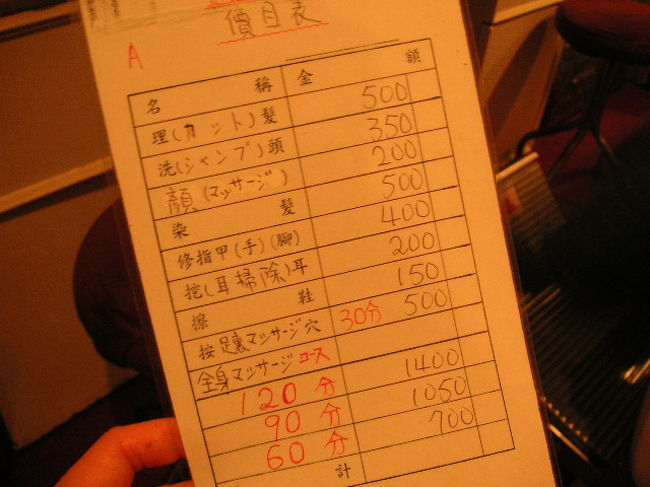 價目表
A
名稱 金額
理(カット)髮 500
洗(シャンプ)頭 350
顔(マッサージ) 200
染髮 500
修指甲(手)(腳) 400
挖(耳掃除)耳 200
擦鞋 150
按足裏マッサージ穴 30分 500
全身マッサージコース
120分 1400
90分 1050
60分 700
計